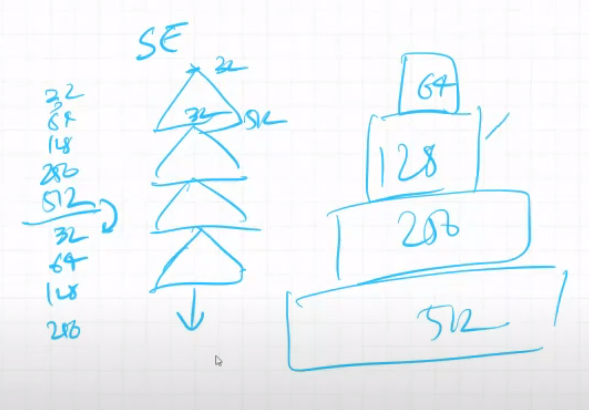 SE
32
64
128
256
512
32
64
128
256
32
32
512
64
128
256
512